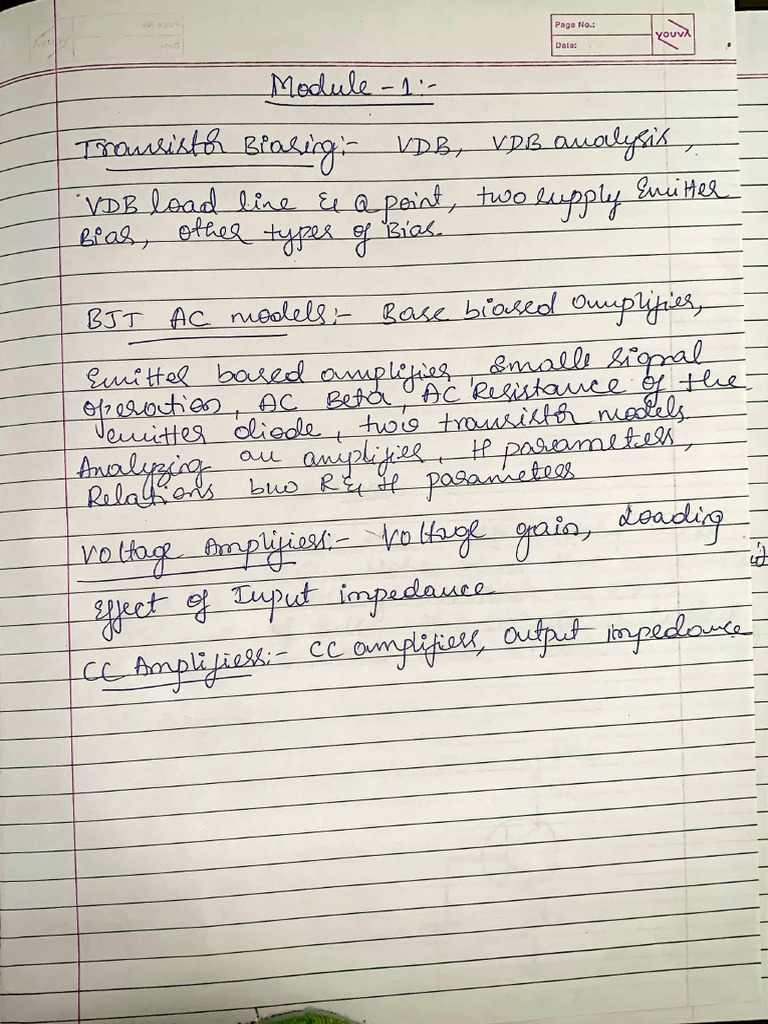 Page No.:
Date:
YOUVA
Module - 1:-
Transistor Biasing:- VDB, VDB analysis,
VDB load line & Q point, two supply Emitter
Bias, other types of Bias.
BJT AC models:- Base biased amplifier,
Emitter based amplifier, Smalle signal
operation, AC Beta, AC Resistance of the
emitter diode, two transistor models.
Analyzing an amplifier, H parameters,
Relations bwo R & H parameters
Voltage Amplifiers:- Voltage gain, Loading
Effect of Input impedance
CC Amplifiers:- CC amplifiers, output impedance